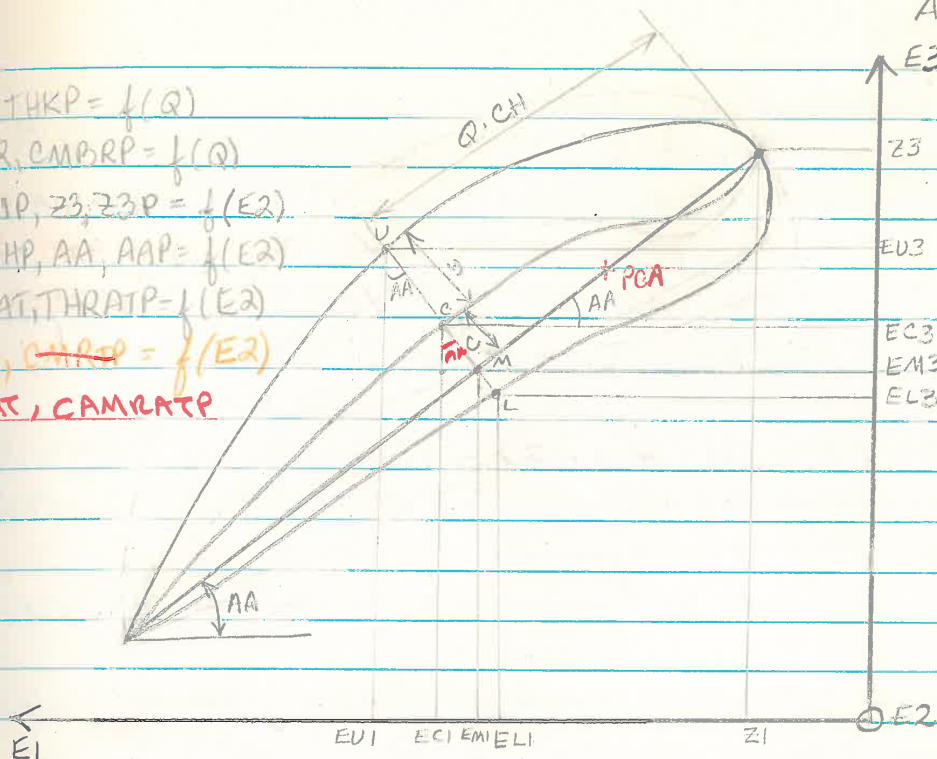 A
E3
THKP = f(Q)
R, CMBRP = f(Q)
1P, Z3, Z3P = f(E2)
HP, AA, AAP = f(E2)
AT, THRATP = f(E2)
, CMRTP = f(E2)
AT, CAMRATP
Q·CH
Z3
U
EU3
AA
PCA
C
AA
EC3
C
AA
M
EM3
L
EL3
AA
E2
E1
EU1 EC1 EM1 EL1 Z1